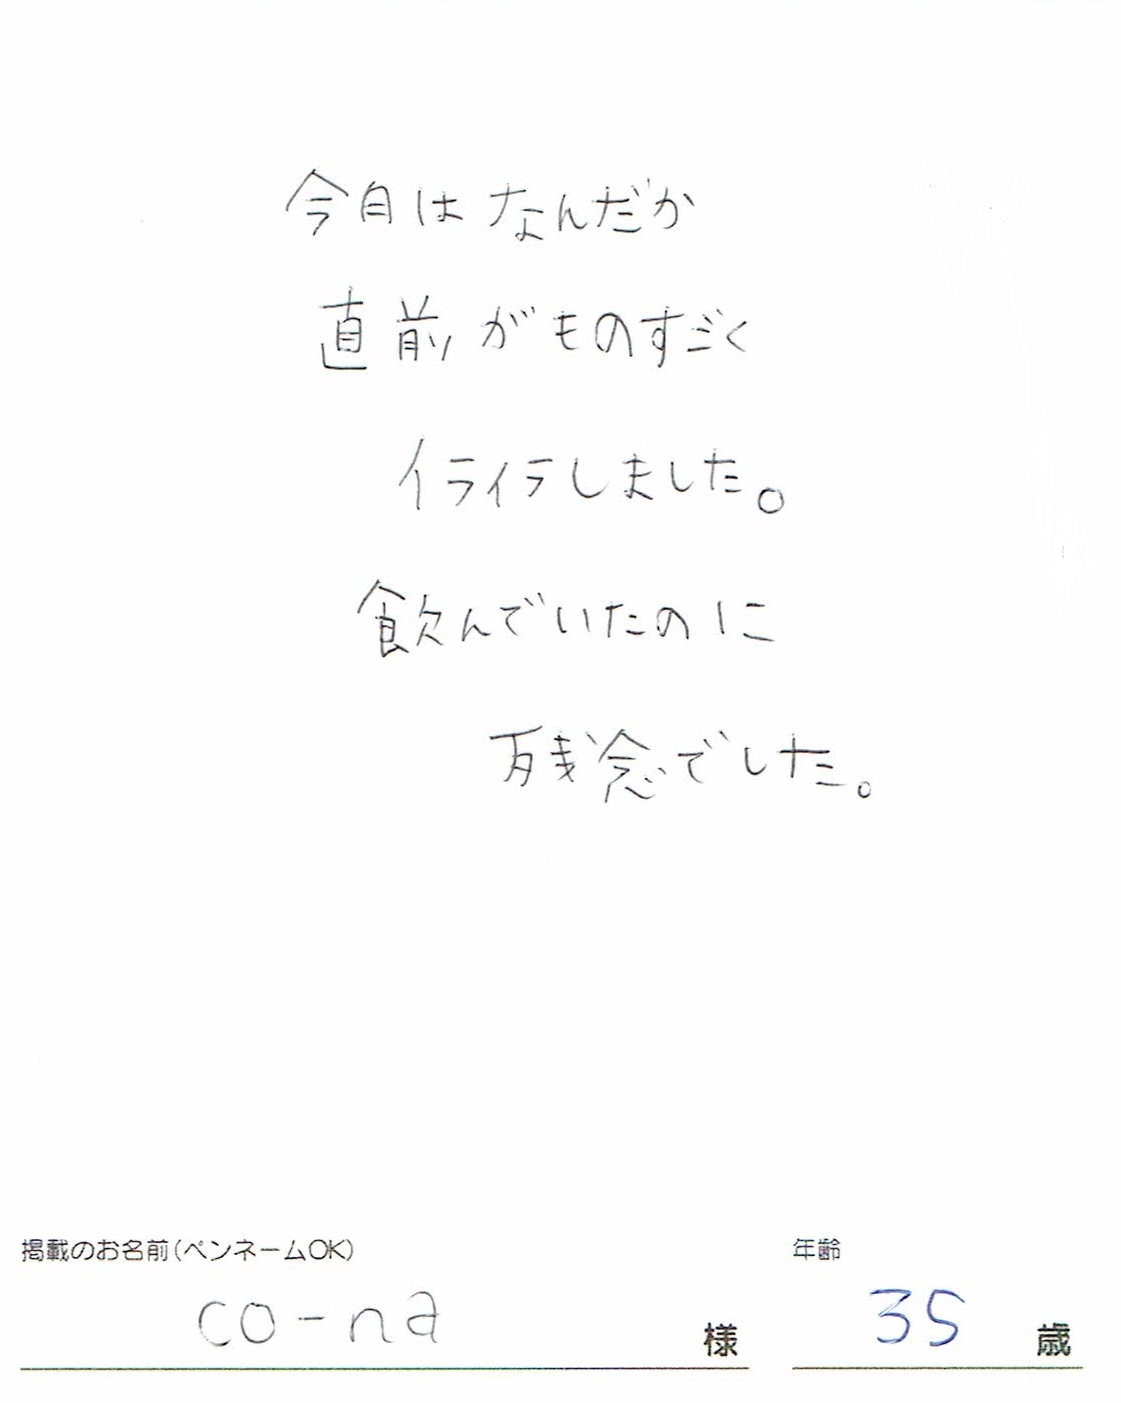 今月はなんだか
直前がものすごく
イライラしました。
飲んでいたのに
残念でした。
掲載のお名前(ペンネームOK)
年齢
co-na 様
35 歳